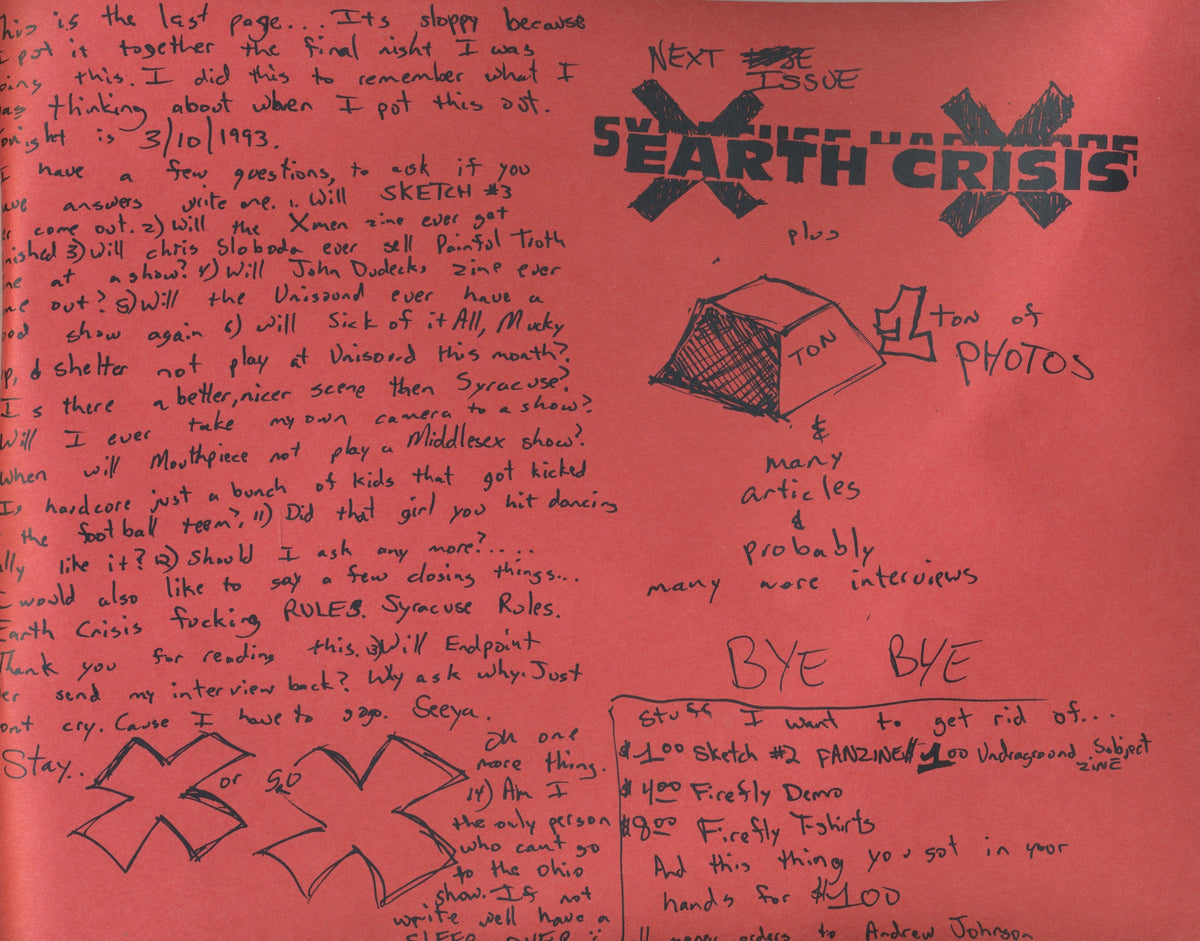 his is the last page... Its sloppy because
I pot it together the final night I was
oing this. I did this to remember what I
as thinking about when I pot this oot.
onight is 3/10/1993.
I have a few questions, to ask if you
ave answers write me. 1. Will SKETCH #3
er come out. 2) Will the Xmen zine ever get
nished 3) Will chris Sloboda ever sell Painful Troth
ne at a show? 4) Will John Dudecks zine ever
me out? 5) Will the Unisound ever have a
ood show again 6) Will Sick of it All, Mucky
p, & shelter not play at Unisoord this month?
Is there a better, nicer scene then Syracuse?
Will I ever take my own camera to a show?
When will Mouthpiece not play a Middlesex show?
Is hardcore just a bunch of kids that got kicked
the football teem? 11) Did that girl you hit dancing
lly like it? 12) Should I ask any more?.....
I would also like to say a few closing things...
Earth Crisis fucking RULES. Syracuse Roles.
Thank you for reading this. 13) Will Endpoint
er send my interview back? Why ask why. Just
ont cry. Cause I have to gogo. Seeya.
Stay..
or so
Oh one
more thing.
14) Am I
the only person
who cant go
to the ohio
show. If not
write well have a
SLEEP OVER
NEXT
ISSUE
SYRACUSE HARDCORE
EARTH CRISIS
plus
TON
1 ton of
PHOTOS
&
many
articles
&
probably
many more interviews
BYE BYE
Stuff I want to get rid of...
$1.00 Sketch #2 FANZINE $1.00 Undraground Subject
ZINE
$4.00 Firefly Demo
$8.00 Firefly T-shirts
And this thing you got in your
hands for $1.00
ll money orders to Andrew Johnson